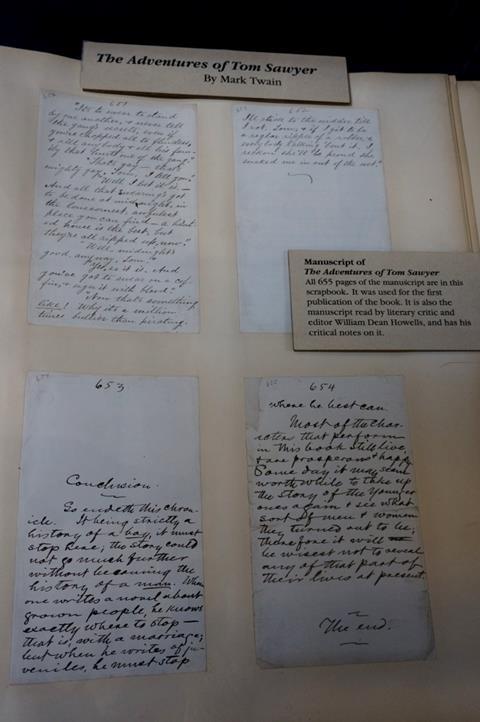 The Adventures of Tom Sawyer
By Mark Twain
651
"It's to swear to stand
by one another, & never tell
the gang's secrets, even if
you're chopped all to flinders,
& kill anybody & all his fam-
ily that hurts one of the gang."
"That's gay—that's
mighty gay, Tom, I tell you."
"Well I bet it is.—
And all that swearing's got
to be done at midnight, in
the lonesomest, awfulest
place you can find—a ha'nted
house is the best, but
they're all ripped up, now."
"Well, midnight's
good, anyway, Tom."
"Yes, so it is. And
you've got to swear on a cof-
fin, & sign it with blood."
"Now that's something
like! Why it's a million
times bullier than pirating.
652
I'll stick to the widder till
I rot, Tom; & if I get to be
a reglar ripper of a robber, &
everybody talking 'bout it, I
reckon she'll be proud she
snaked me in out of the wet."
Manuscript of
The Adventures of Tom Sawyer
All 655 pages of the manuscript are in this
scrapbook. It was used for the first
publication of the book. It is also the
manuscript read by literary critic and
editor William Dean Howells, and has his
critical notes on it.
653
Conclusion.
So endeth this chron-
icle. It being strictly a
history of a boy, it must
stop here; the story could
not go much further
without becoming the
history of a man. When
one writes a novel about
grown people, he knows
exactly where to stop—
that is, with a marriage;
but when he writes of ju-
veniles, he must stop
654
where he best can.
Most of the char-
acters that perform
in this book still live,
& are prosperous & happy.
Some day it may seem
worth while to take up
the story of the younger
ones again & see what
sort of men & women
they turned out to be;
therefore it will
be wisest not to reveal
any of that part of
their lives at present.
The end.